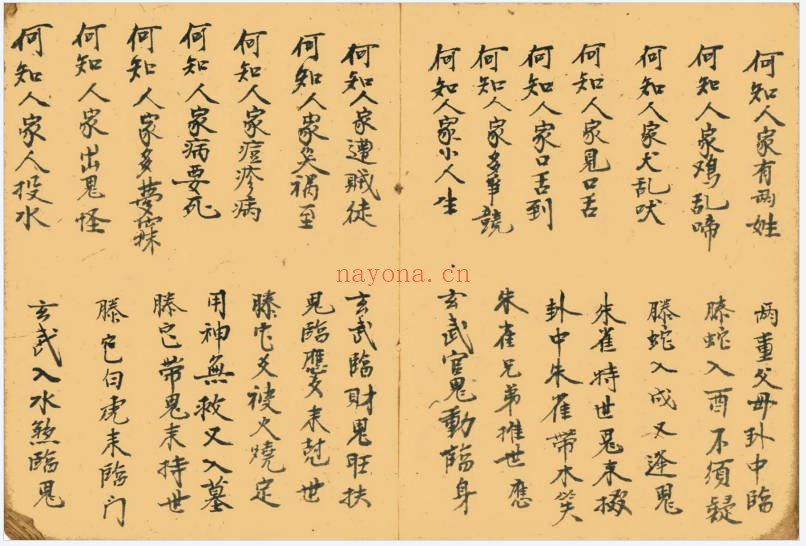 何知人家有两姓
两重父母卦中臨
何知人家鸡乱啼
螣蛇入酉不须疑
何知人家犬乱吠
螣蛇入戌又逢鬼
何知人家見口舌
朱雀持世鬼来掇
何知人家口舌到
卦中朱雀帶木笑
何知人家多争競
朱雀兄弟推世應
何知人家小人生
玄武官鬼動臨身
何知人家遭賊徒
玄武臨財鬼旺扶
何知人家災禍至
鬼臨應爻来尅世
何知人家痘疹病
螣蛇爻被火燒定
何知人家病要死
用神無救又入墓
何知人家多夢寐
螣蛇帶鬼来持世
何知人家出鬼怪
螣蛇白虎来臨门
何知人家人投水
玄武入水煞臨鬼
nayona.cn